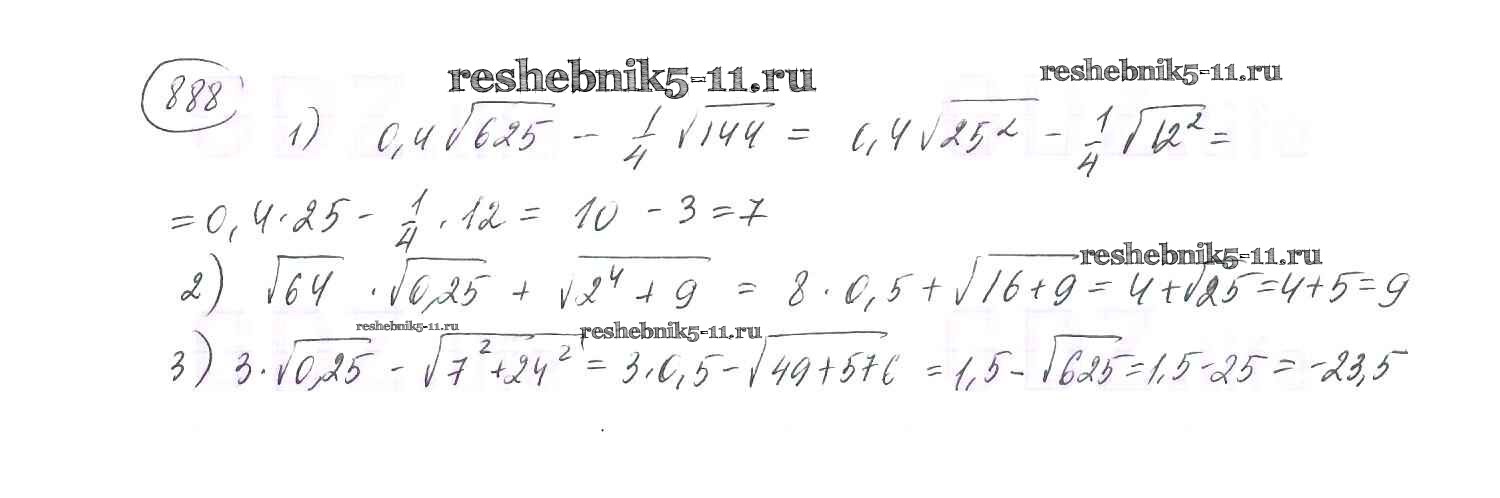 888 reshebnik5-11.ru reshebnik5-11.ru
1) 0,4√625 - 1/4 √144 = 0,4√25² - 1/4 √12² =
= 0,4·25 - 1/4 · 12 = 10 - 3 = 7
reshebnik5-11.ru
2) √64 · √0,25 + √2⁴ + 9 = 8 · 0,5 + √16+9 = 4+√25 = 4+5 = 9
reshebnik5-11.ru reshebnik5-11.ru
3) 3·√0,25 - √7²+24² = 3·0,5 - √49+576 = 1,5 - √625 = 1,5 - 25 = -23,5